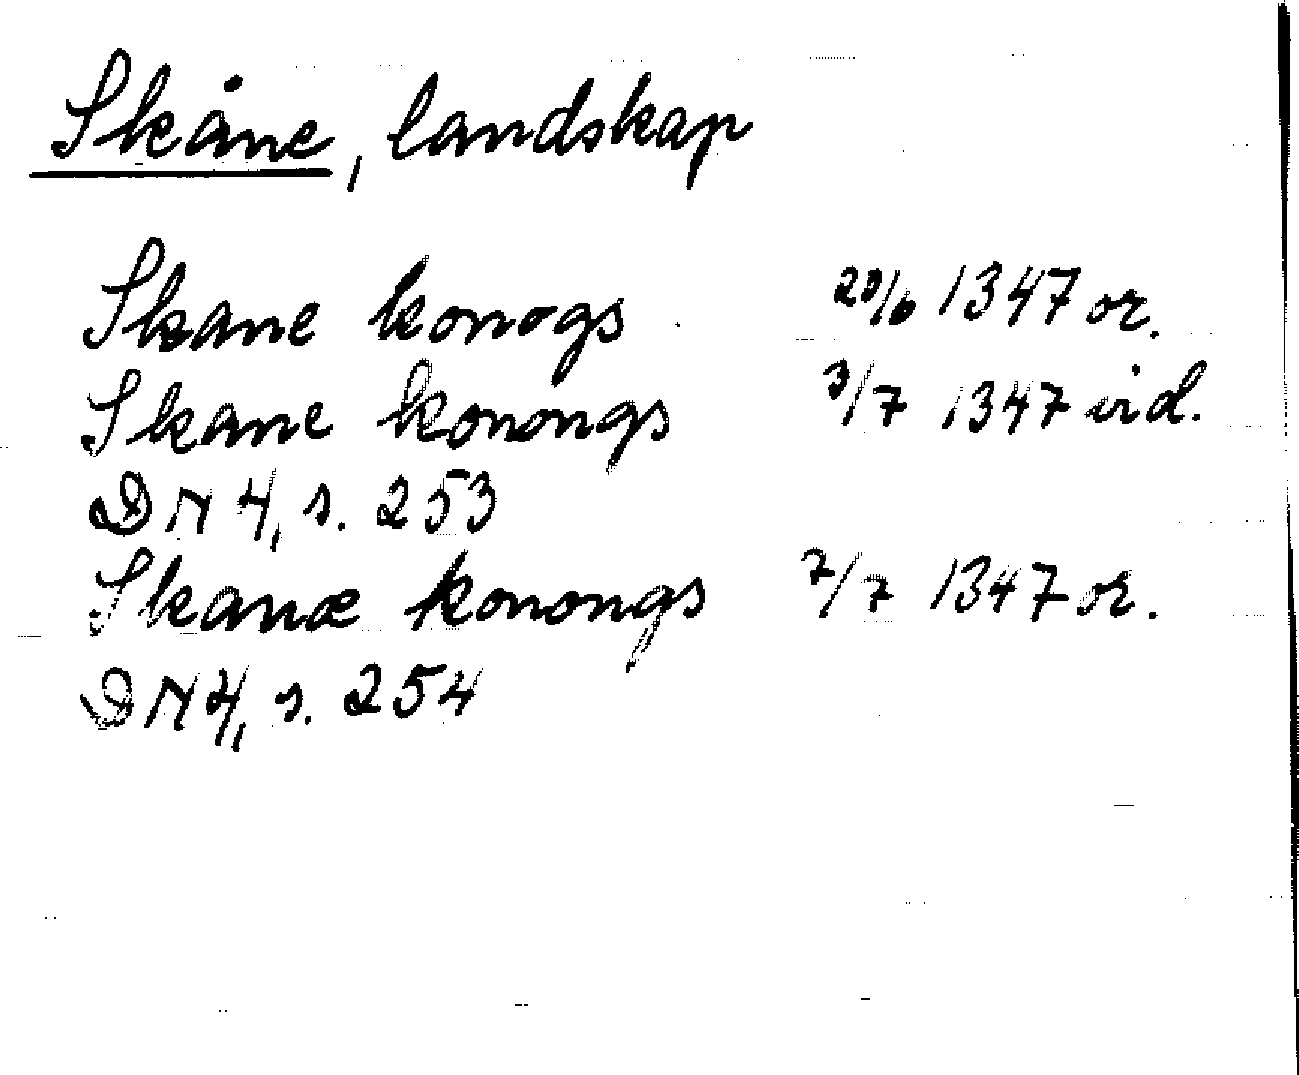 Skåne, landskap
Skane konogs 20/6 1347 or.
Skane konongs 3/7 1347 vid.
DN 4, s. 253
Skanæ konongs 7/7 1347 or.
DN 4, s. 254